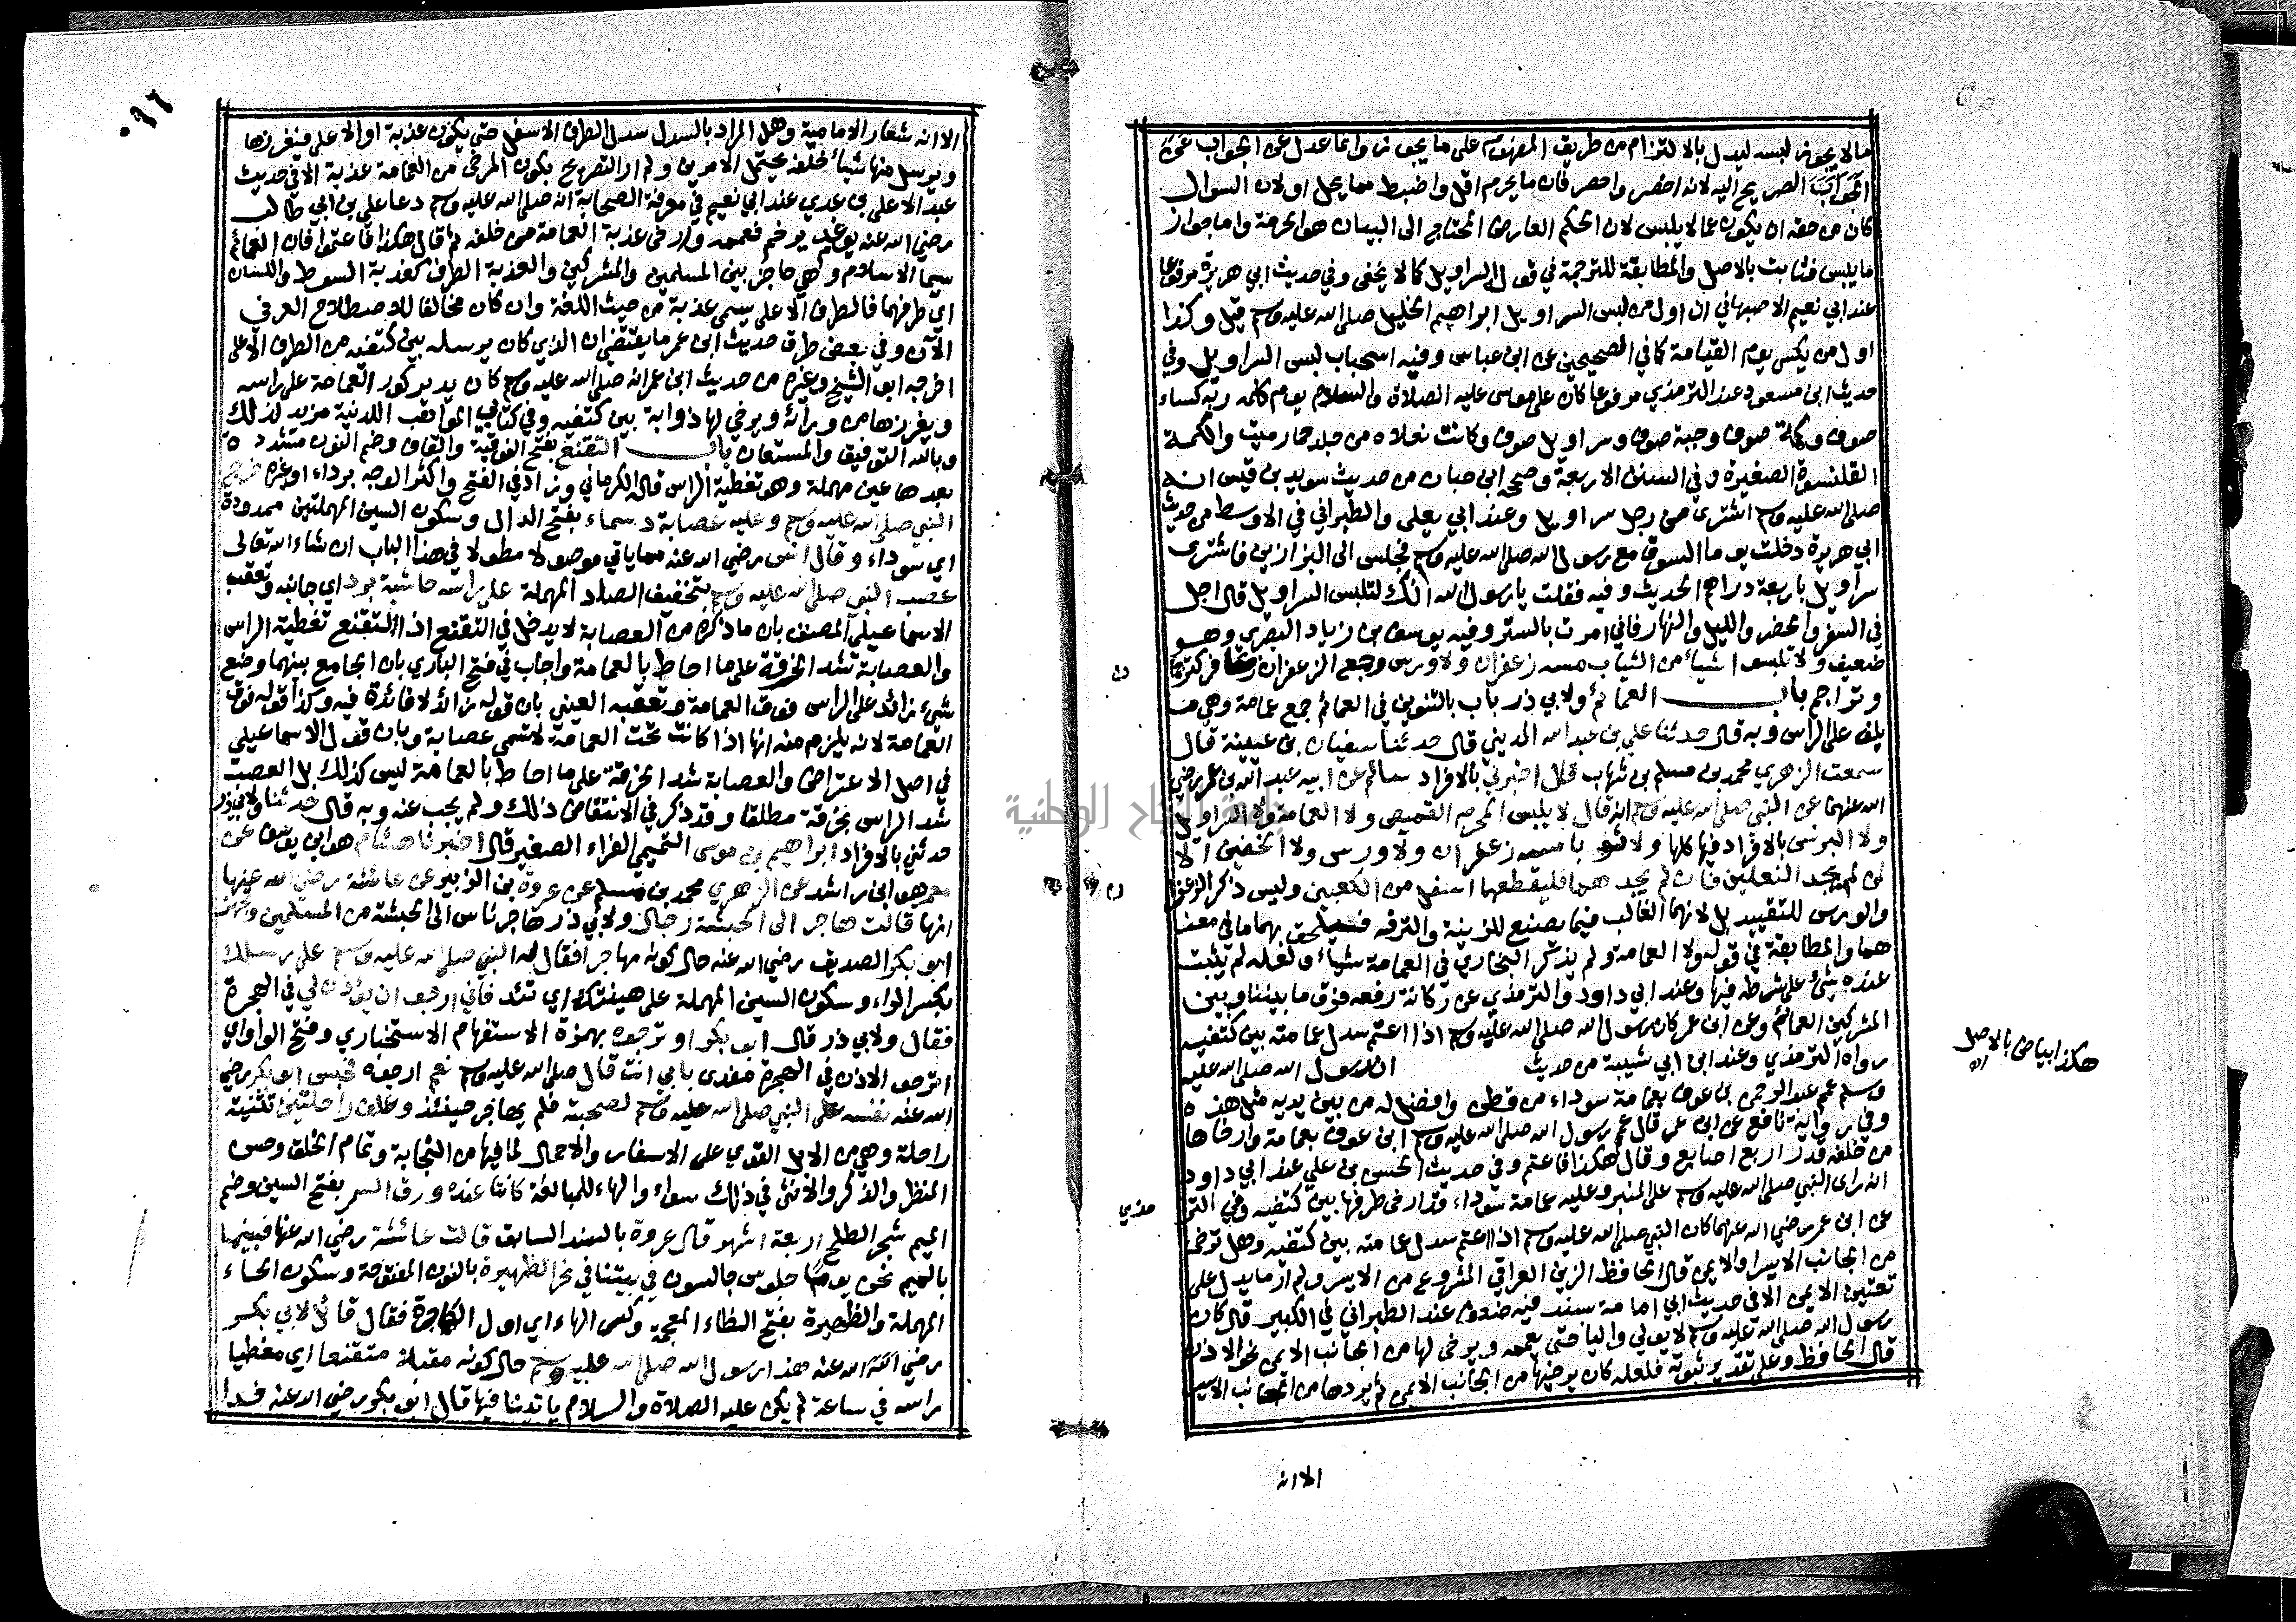 ما لا يجوز لبسه ليدل بالالتزام من طريق المفهوم على ما يجوز وانما عدل عن الجواب عن
الجواب الصريح اليه لانه اخصر واحصر فان ما يحرم اقل واضبط مما يحل او لان السوال
كان من حقه ان يكون عما لا يلبس لان الحكم العارض المحتاج الى البيان هو الحرمة واما جواز
ما يلبس فثابت بالاصل والمطابقة للترجمة في قوله السراويل كما لا يخفى وفي حديث ابي هريرة مرفوعا
عند ابي نعيم الاصبهاني ان اول من لبس السراويل ابراهيم الخليل صلى الله عليه وسلم قيل وكذا
اول من يكسى يوم القيامة كما في الصحيحين عن ابن عباس وفيه استحباب لبس السراويل وفي
حديث ابن مسعود عند الترمذي مرفوعا كان على موسى عليه الصلاة والسلام يوم كلمه ربه كساء
صوف وكمة صوف وجبة صوف وسراويل صوف وكانت نعلاه من جلد حمار ميت والكمة
القلنسوة الصغيرة وفي السنن الاربعة وصححه ابن حبان من حديث سويد بن قيس انه
صلى الله عليه وسلم اشترى من رجل سراويل وعند ابي يعلى والطبراني في الاوسط من حديث
ابي هريرة دخلت يوما السوق مع رسول الله صلى الله عليه وسلم فجلس الى البزازين فاشترى
سراويل باربعة دراهم الحديث وفيه فقلت يا رسول الله انك لتلبس السراويل قال اجل
في السفر والحضر والليل والنهار فاني امرت بالستر وفيه يوسف بن زياد البصري وهو
ضعيف ولا تلبسوا شيئا من الثياب مسه زعفران ولا ورس وجمع الزعفران زعافر كترجمان
وتراجم باب العمائم ولابي ذر باب بالتنوين في العمائم جمع عمامة وهي ما
يلف على الراس وبه قال حدثنا علي بن عبد الله المديني قال حدثنا سفيان بن عيينة قال
سمعت الزهري محمد بن مسلم بن شهاب قال اخبرني بالافراد سالم عن ابيه عبد الله بن عمر رضي
الله عنهما عن النبي صلى الله عليه وسلم انه قال لا يلبس المحرم القميص ولا العمامة ولا السراويل
ولا البرنس بالافراد فيها كلها ولا ثوبا مسه زعفران ولا ورس ولا الخفين الا
لمن لم يجد النعلين فان لم يجدهما فليقطعهما اسفل من الكعبين وليس ذكر الزعفران
والورس للتقييد بل لانهما الغالب فيما يصنع للزينة والترفه فيلحق بهما ما في معنا
هما والمطابقة في قوله ولا العمامة ولم يذكر البخاري في العمامة شيئا ولعله لم يثبت
عنده شئ على شرطه فيها وعند ابي داود والترمذي عن ركانة رفعه فرق ما بيننا وبين
المشركين العمائم وعن ابن عمر كان رسول الله صلى الله عليه وسلم اذا اعتم سدل عمامته بين كتفيه
رواه الترمذي وعند ابن ابي شيبة من حديث ان رسول الله صلى الله عليه
وسلم عمم عبد الرحمن بن عوف بعمامة سوداء من قطن وافضل له من بين يديه مثل هذه
وفي رواية نافع عن ابن عمر قال عمم رسول الله صلى الله عليه وسلم ابن عوف بعمامة وارخاها
من خلفه قدر اربع اصابع وقال هكذا فاعتم وفي حديث الحسن بن علي عند ابي داود
انه راى النبي صلى الله عليه وسلم على المنبر وعليه عمامة سوداء قد ارخى طرفها بين كتفيه وفي التر
مذي
عن ابن عمر رضي الله عنهما كان النبي صلى الله عليه وسلم اذا اعتم سدل عمامته بين كتفيه وهل ترخى
من الجانب الايسر او الايمن قال الحافظ الزين العراقي المشروع من الايسر ولم ار ما يدل على
تعيين الايمن الا في حديث ابي امامة بسند فيه ضعف عند الطبراني في الكبير قال كان
رسول الله صلى الله عليه وسلم لا يولي واليا حتى يعممه ويرخي لها من الجانب الايمن نحو الاذن
قال الحافظ وعلى تقدير ثبوته فلعله كان يرخيها من الجانب الايمن ثم يردها من الجانب الايسر
الا انه
هكذا بياض بالاصل
جامعة النجاح الوطنية
٠٩٦
الا انه شعار الامامية وهل المراد بالسدل سدل الطرف الاسفل حتى يكون عذبة او الاعلى فيغرزها
ويرسل منها شيئا خلفه يحتمل الامرين ولم ار التصريح بكون المرخى من العمامة عذبة الا في حديث
عبد الاعلى بن عدي عند ابي نعيم في معرفة الصحابة انه صلى الله عليه وسلم دعا علي بن ابي طالب
رضي الله عنه يوم غدير خم فعممه وارخى عذبة العمامة من خلفه ثم قال هكذا فاعتموا فان العمائم
سيما الاسلام وهي حاجز بين المسلمين والمشركين والعذبة الطرف كعذبة السوط واللسان
اي طرفهما فالطرف الاعلى يسمى عذبة من حيث اللغة وان كان مخالفا للاصطلاح العرفي
الآن وفي بعض طرق حديث ابن عمر ما يقتضي ان الذي كان يرسله بين كتفيه من الطرف الاعلى
اخرجه ابو الشيخ وغيره من حديث ابن عمر انه صلى الله عليه وسلم كان يدير كور العمامة على راسه
ويغرزها من ورائه ويرخي لها ذوابة بين كتفيه وفي كتابي المواهب اللدنية مزيد لذلك
وبالله التوفيق والمستعان باب التقنع بفتح الفوقية والقاف وضم النون مشددة
بعدها عين مهملة وهو تغطية الراس قاله الكرماني وزاد في الفتح واكثر الوجه برداء او غيره خرج
النبي صلى الله عليه وسلم وعليه عصابة دسماء بفتح الدال وسكون السين المهملتين ممدودة
اي سوداء وقال انس رضي الله عنه مما ياتي موصولا مطولا في هذا الباب ان شاء الله تعالى
عصب النبي صلى الله عليه وسلم بتخفيف الصاد المهملة على راسه حاشية برد اي جانبه وتعقب
الاسماعيلي المصنف بان ما ذكره من العصابة لا يدخل في التقنع اذ التقنع تغطية الراس
والعصابة شد الخرقة على ما احاط بالعمامة واجاب في فتح الباري بان الجامع بينهما وضع
شيء زائد على الراس فوق العمامة وتعقبه العيني بان قوله زائد لا فائدة فيه وكذا قوله فوق
العمامة لانه يلزم منه انها اذا كانت تحت العمامة لا تسمى عصابة وبان قول الاسماعيلي
في اصل الاعتراض والعصابة شد الخرقة على ما احاط بالعمامة ليس كذلك بل العصب
شد الراس بخرقة مطلقا وقد ذكر في الانتقاض ذلك ولم يجب عنه وبه قال حدثنا ولابي ذر
حدثني بالافراد ابراهيم بن موسى التميمي الفراء الصغير قال اخبرنا هشام هو ابن يوسف عن
معمر هو ابن راشد عن الزهري محمد بن مسلم عن عروة بن الزبير عن عائشة رضي الله عنها
انها قالت هاجر الى الحبشة رجال ولابي ذر هاجر ناس الى الحبشة من المسلمين وتجهز
ابو بكر الصديق رضي الله عنه حال كونه مهاجرا فقال له النبي صلى الله عليه وسلم على رسلك
بكسر الراء وسكون السين المهملة على هينتك اي تئد فاني ارجو ان يؤذن لي في الهجرة
فقال ولابي ذر قال ابو بكر او ترجوه بهمزة الاستفهام الاستخباري وفتح الواو اي
اترجو الاذن في الهجرة مفدى بابي انت قال صلى الله عليه وسلم نعم ارجوه فحبس ابو بكر رضي
الله عنه نفسه على النبي صلى الله عليه وسلم لصحبته فلم يهاجر حينئذ وعلف راحلتين تثنية
راحلة وهي من الابل القوي على الاسفار والاحمال لما فيها من النجابة وتمام الخلق وحسن
المنظر والذكر والانثى في ذلك سواء والهاء للمبالغة كانتا عنده ورق السمر بفتح السين وضم
الميم شجر الطلح اربعة اشهر قال عروة بالسند السابق قالت عائشة رضي الله عنها فبينما
بالميم نحن يوما جلوس جالسون في بيتنا في نحر الظهيرة بالنون المفتوحة وسكون الحاء
المهملة والظهيرة بفتح الظاء المعجمة وكسر الهاء اي اول الهاجرة فقال قائل لابي بكر
رضي الله عنه هذا رسول الله صلى الله عليه وسلم حال كونه مقبلا متقنعا اي مغطيا
راسه في ساعة لم يكن عليه الصلاة والسلام ياتينا فيها قال ابو بكر رضي الله عنه فدا